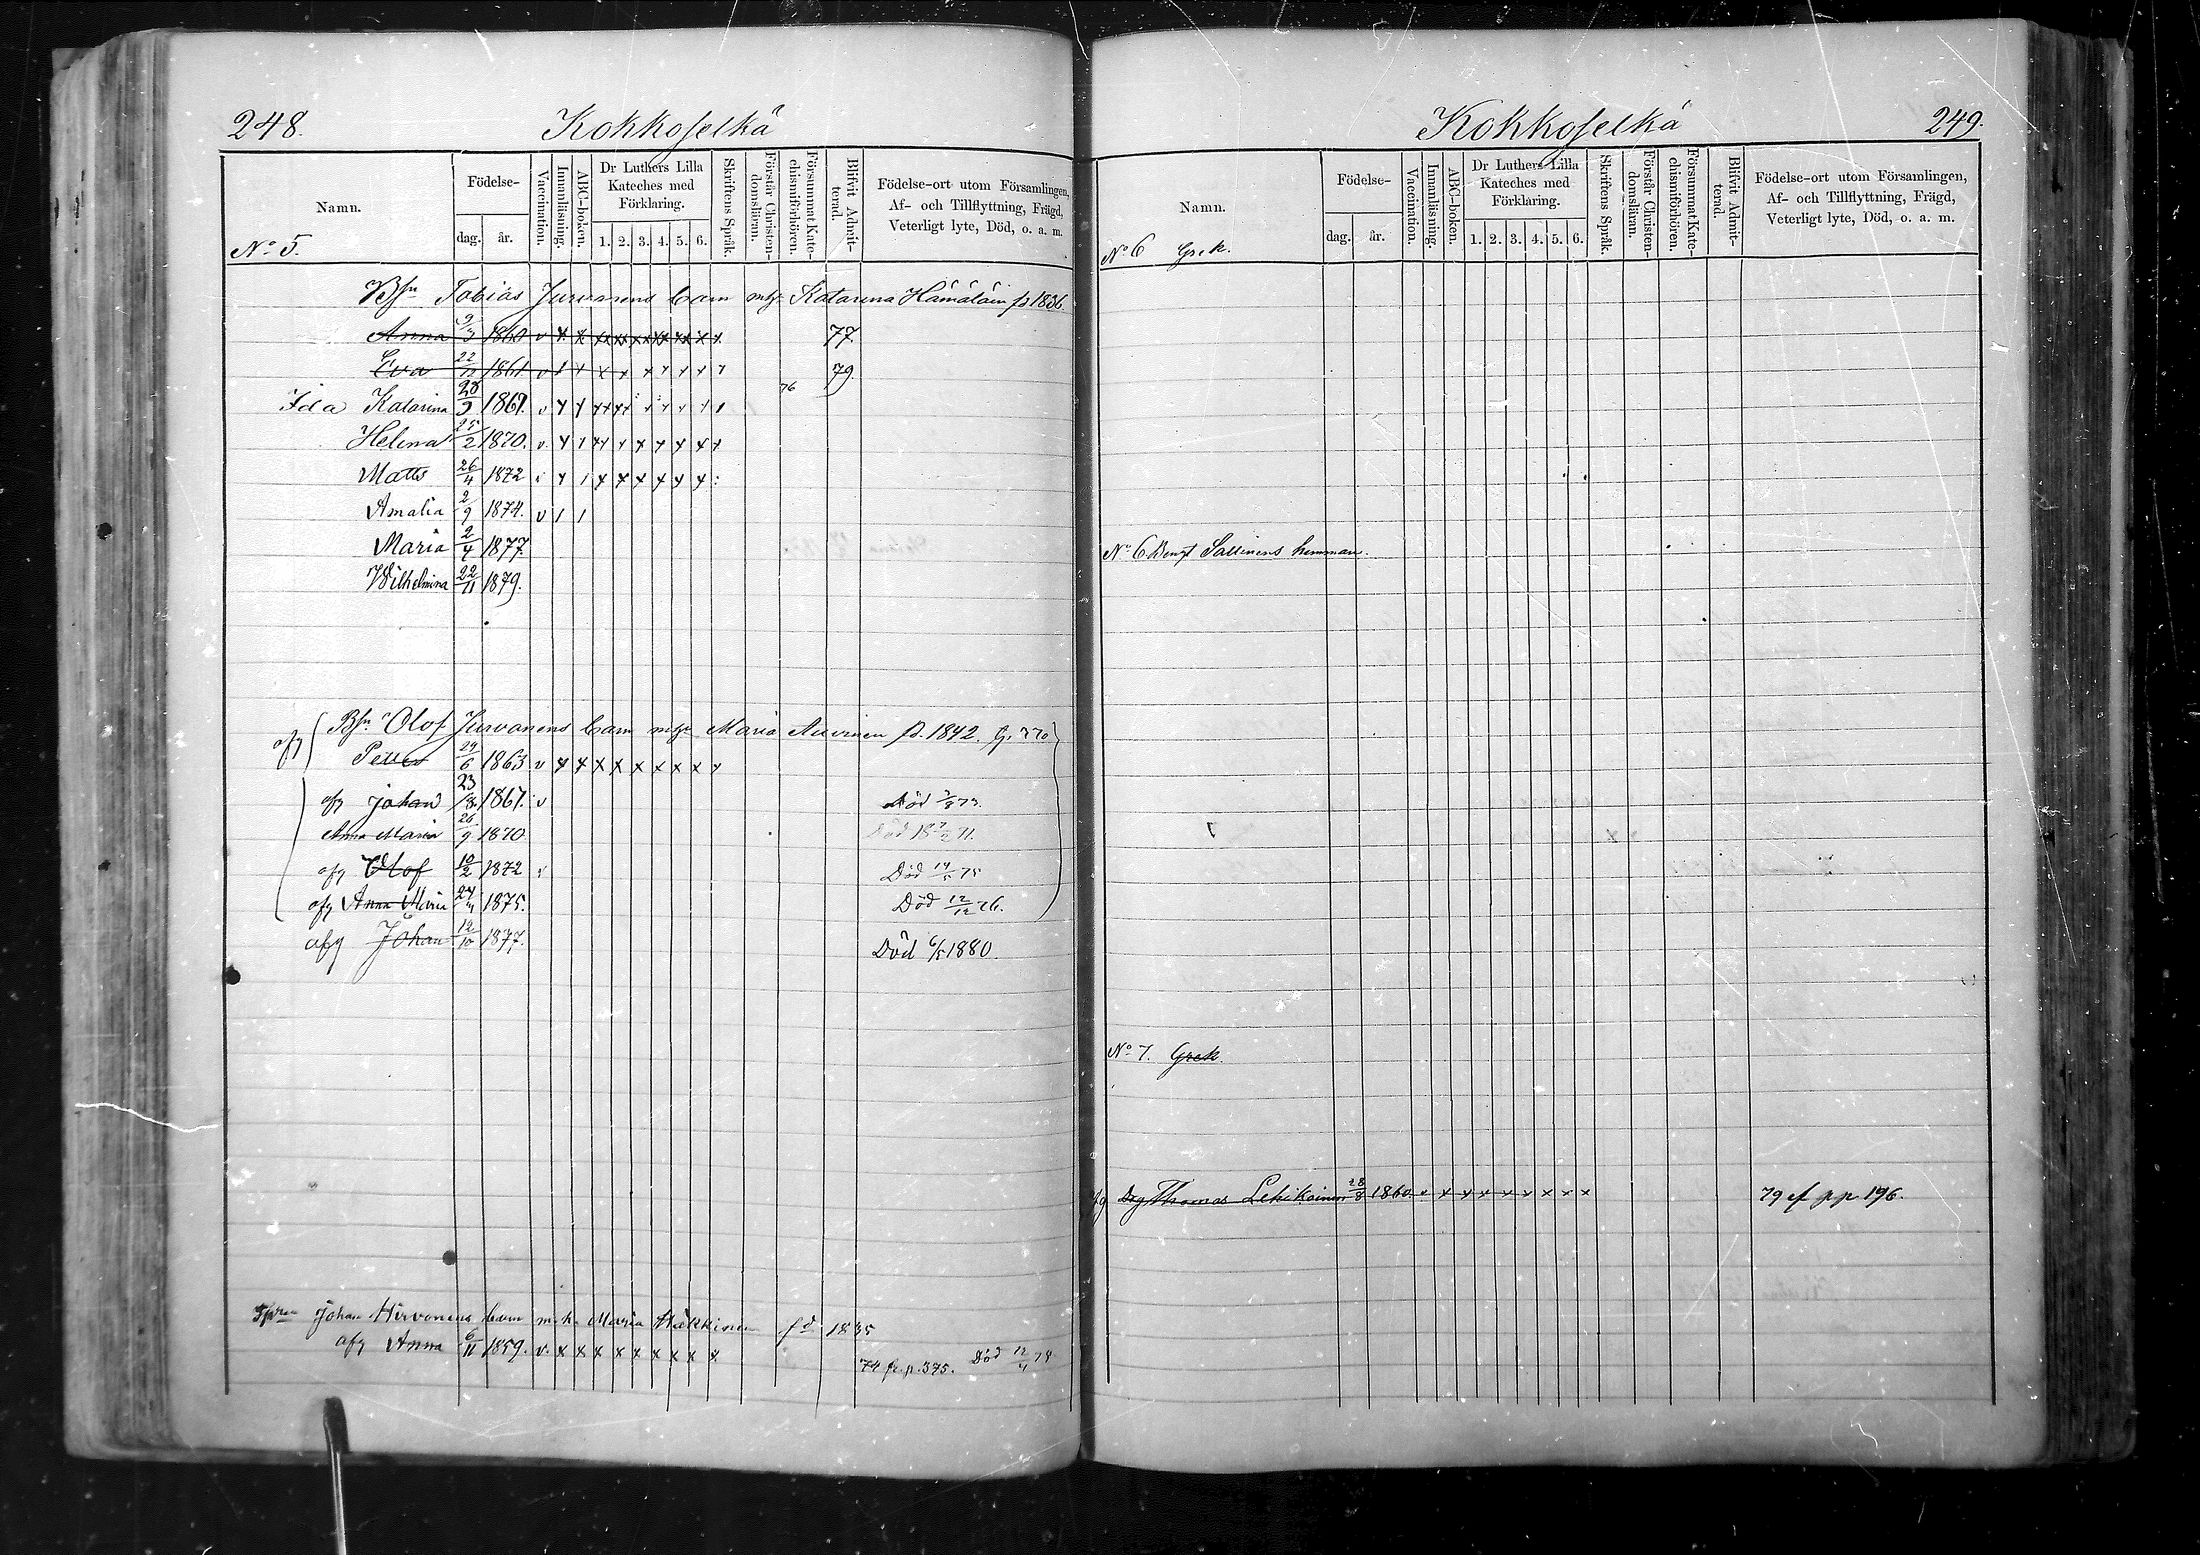 248. Kokkoselkä
Namn. Födelse- dag. år. Vaccination. Innanläsning. ABC-boken. Dr Luthers Lilla Kateches med Förklaring. 1. 2. 3. 4. 5. 6. Skriftens Språk. Förstår Christendomsläran. Försummat Katechismiförhören. Blifvit Admitterad. Födelse-ort utom Församlingen, Af- och Tillflyttning, Frägd, Veterligt lyte, Död, o. a. m.
No 5.
Bfn Tobias Jurvanens barn m Katarina Hämäläin 1836.
Anna 1860 v x x xx xx xx xx xx x x 77.
Eva 22/12 1861 v x x x x x x x x x 79.
Ida Katarina 28/9 1867. v 76
Helena 25/2 1870. v.
Matts 26/4 1872
Amalia 2/9 1874. v
Maria 2/4 1877.
Wilhelmina 22/11 1879.
Bfn Olof Jurvanens barn m Maria Auvinen 1842.
afg Petter 29/6 1863 v x x x x x x x x x
afg Johan 23/8 1867. v Död 73.
Anna Maria 26/9 1870 Död 71.
afg Olof 10/2 1872 Död 14/5 75
afg Anna Maria 1875. Död 12/12 76.
afg Johan 12/10 1877. Död 6/5 1880.
Johan Hirvonens barn m. h. Maria Häkkinen fd 1835
afg Anna 6/11 1859. v. x x x x x x x x x 74 fr. p. 375. Död 12/4 74
Kokkoselkä 249.
Namn. Födelse- dag. år. Vaccination. Innanläsning. ABC-boken. Dr Luthers Lilla Kateches med Förklaring. 1. 2. 3. 4. 5. 6. Skriftens Språk. Förstår Christendomsläran. Försummat Katechismiförhören. Blifvit Admitterad. Födelse-ort utom Församlingen, Af- och Tillflyttning, Frägd, Veterligt lyte, Död, o. a. m.
No 6 Grek.
No 6 Bengt Sallinens hemman.
No 7. Grek.
afg Drg Thomas 28/8 1860 v x x x x x x x x 79 196.